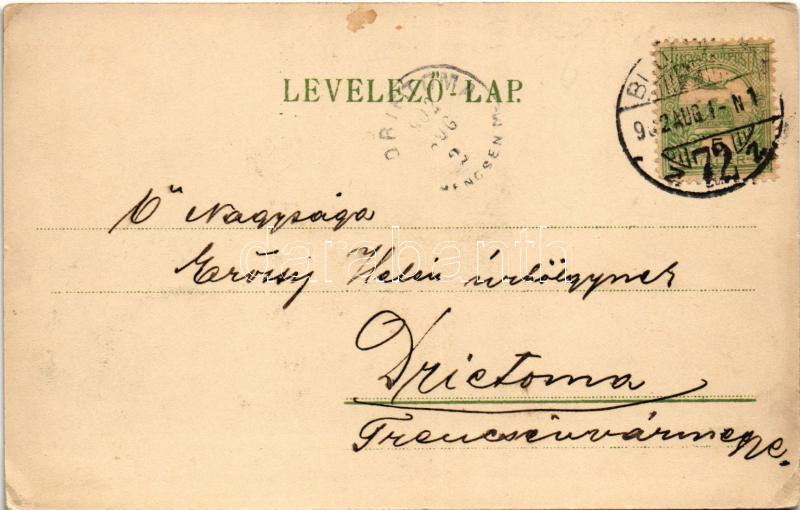 LEVELEZŐ-LAP.
DRIETOMA
902 AUG 2
TRENCSEN M
902 AUG 1 - N 1
72
Ő Nagysága
Erőssy Helén úrhölgynek
Drietoma
Trencsénvármegye.
darabanth